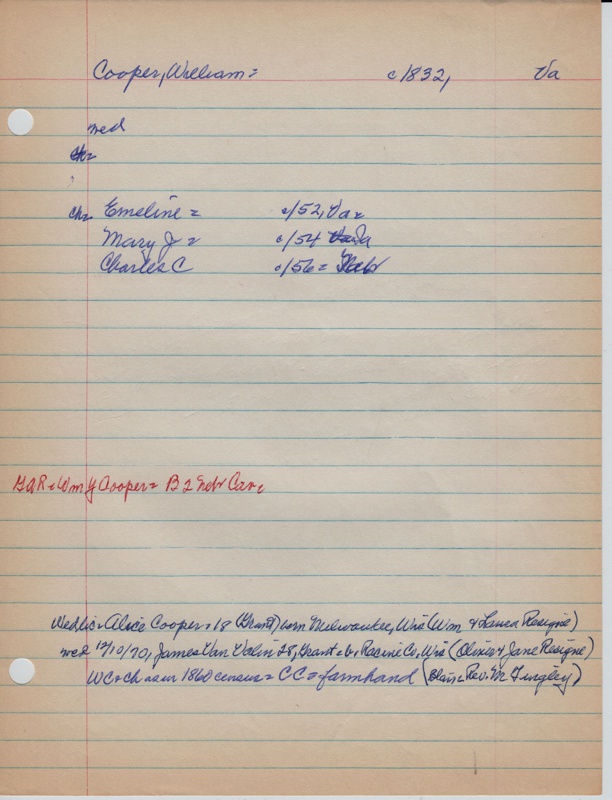 Cooper, William = c/1832, Va
med
ch=
ch= Emeline = c/52, Va=
Mary J = c/54
Charles C c/56 =
GAR = Wm Y Cooper = B 2 Nebr Cav.
Wedlic = Alice Cooper = 18 (Grant) born Milwaukee, Wis (Wm & Laura Resigne)
med 12/10/70, James Van Valin 28, Grant = b. Racine Co, Wis (Oliver & Jane Resigne)
WC & ch as in 1860 census = CC = farmhand (Blair = Rev. M Tingley)